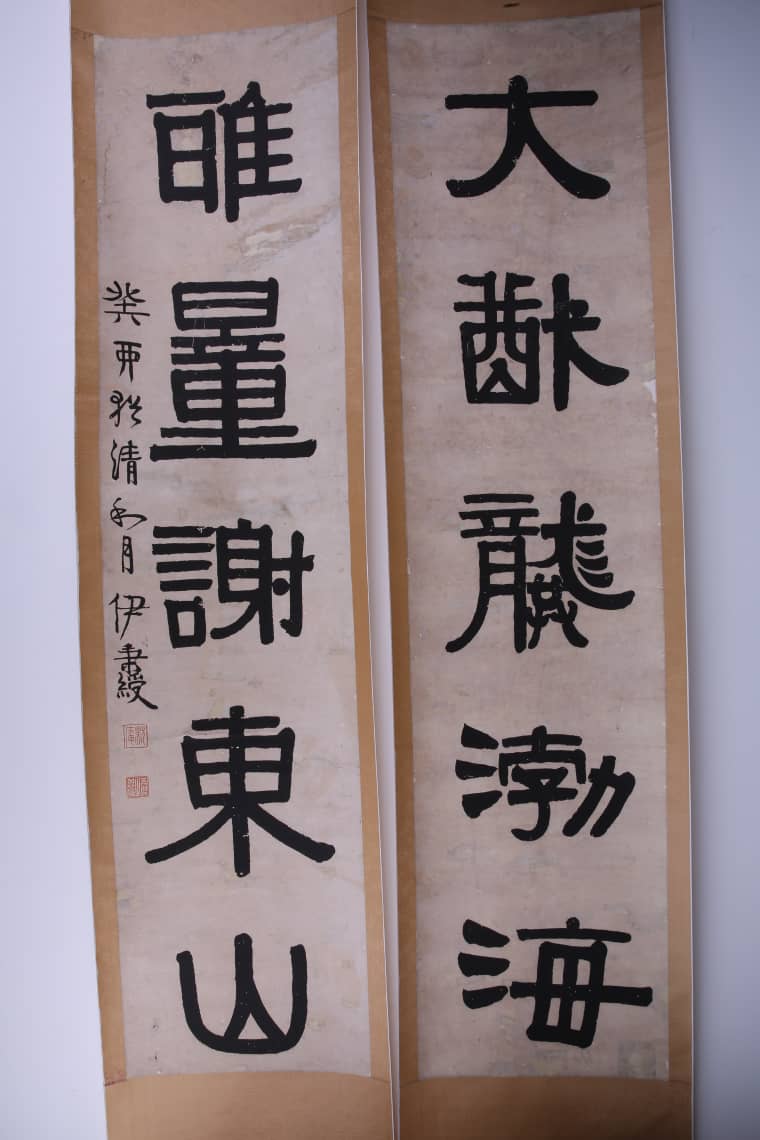 大猷龔渤海
雅量謝東山
癸酉於清和月伊秉綬